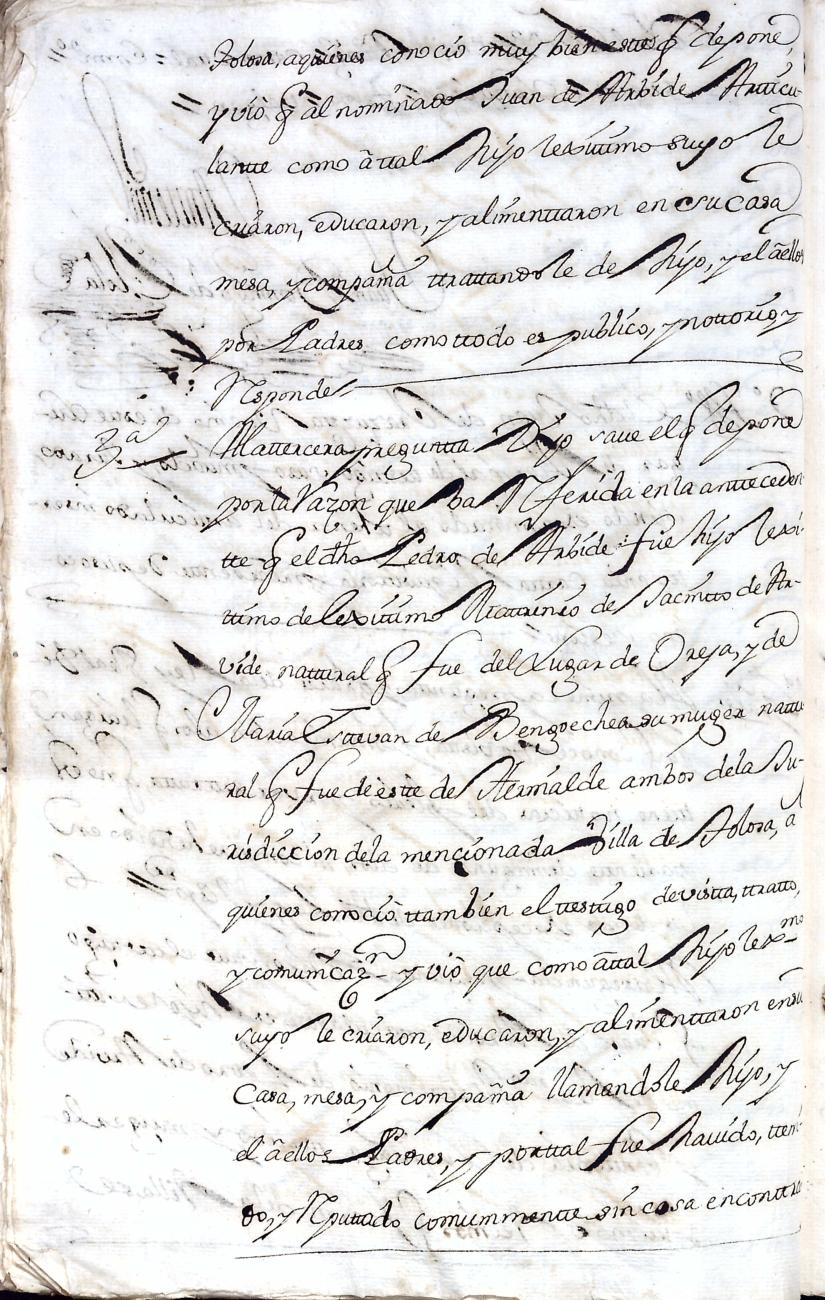 Tolosa, aquienes conocio muy bien estte q̃ depone
y vio q̃ al nominado Juan de Arbide Articu-
lantte como âttal Hijo lexittimo suyo le
criaron, educaron, y alimenttaron en su Casa
mesa, y compañia ttrattandole de Hijo, y el âellos
por Padres como ttodo es publico, y nottorio, y
Responde
3.ª Alattercera pregunta Dijo save el q̃ depone
por la Razon que ba Referida en la anttecceden
tte q̃ el dho Pedro de Arbide fue hijo lexi-
ttimo de lexittimo Mattrimonio de Jacintto de Ar-
vide nattural q̃ fue del Lugar de Oreja, y de
Maria Esttevan de Bengoechea su muger nattu
ral q̃ fue de estte de Alermalde ambos dela Ju-
risdiccion dela mencionada Villa de Tolosa, a
quienes conocio ttambien el ttesttigo de vistta, ttratto,
y comunicaz.n y vio que como âttal Hijo lex.mo
suyo le criaron, educaron, y alimenttaron ensu
Casa, mesa, y compañia llamandole Hijo, y
el âellos Padres, y por ttal fue havido, tteni
do, y Reputtado comunmentte sin cosa en conttra